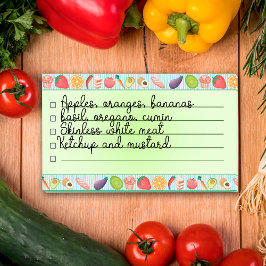 Apples, oranges, bananas
basil, oregano, cumin
Skinless white meat
Ketchup and mustard